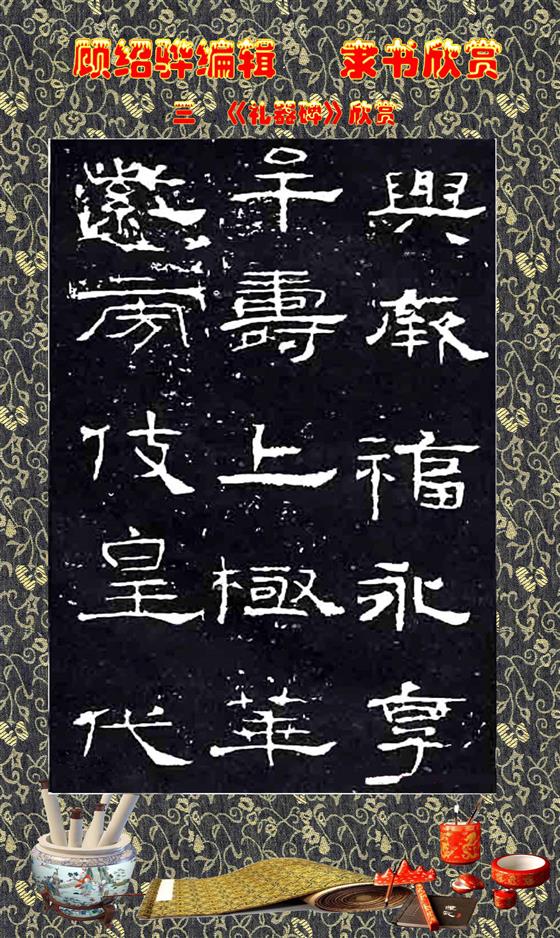 顾绍骅编辑 隶书欣赏
三 《礼器碑》欣赏
與厥福永享
牟壽上極華
紫旁伎皇代